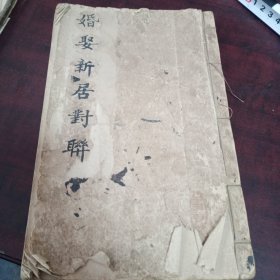 婚娶新居對聯